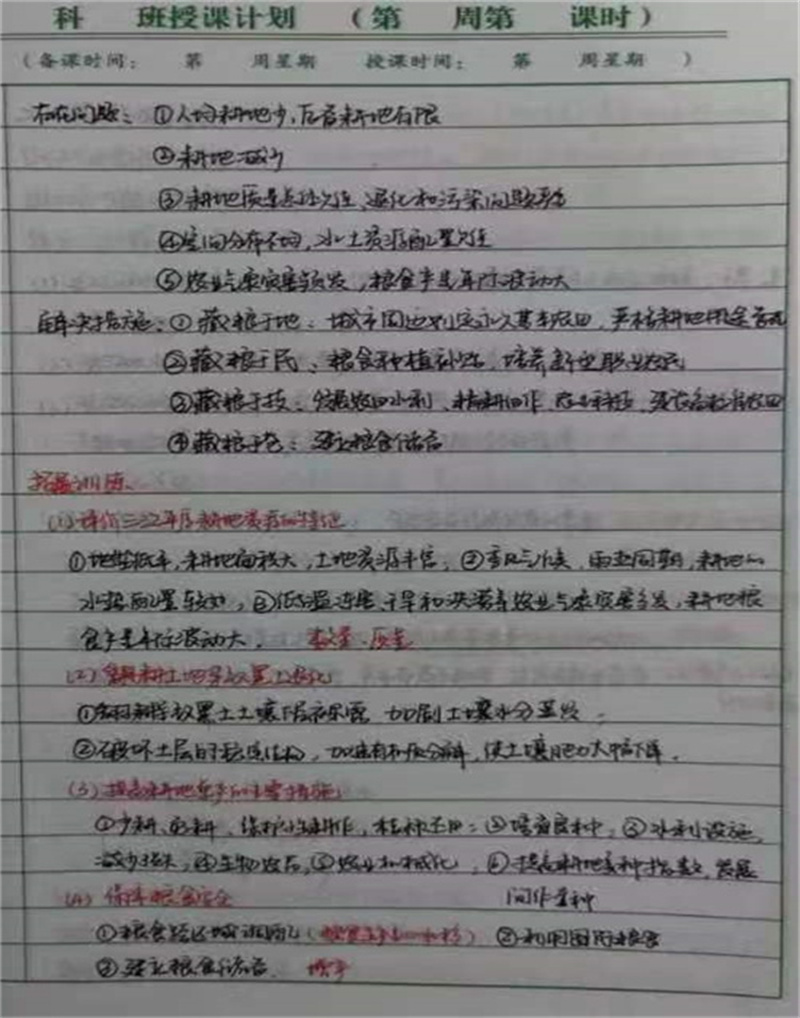 科 班授课计划 （第 周第 课时）
（备课时间： 第 周星期 授课时间： 第 周星期 ）
存在问题：①人均耕地少，后备耕地有限
②耕地减少
③耕地质量总体欠佳、退化和污染问题严重
④空间分布不均，水土资源配置欠佳
⑤农业气象灾害多发，粮食产量年际波动大
解决措施：①藏粮于地：城市周边划定永久基本农田，严格耕地用途管制
②藏粮于民：粮食种植补贴，培养新型职业农民
③藏粮于技：发展农田水利、精耕细作、农业科技、建设高标准农田
④藏粮于仓：建立粮食储备
拓展训练
(1)评价三江平原耕地资源的特征
①地势低平，耕地面积大，土地资源丰富，②季风气候，雨热同期，耕地的
水热配置较好，③低温冻害、干旱和洪涝等农业气象灾害多发，耕地粮
食产量年际波动大． 数量、质量
(2) 翻耕土地导致黑土退化
①翻耕导致黑土土壤层裸露，加剧土壤水分蒸发；
②破坏土层的 结构，加速有机质分解，使土壤肥力大幅下降．
(3) 提高耕地 的主要措施
①少耕、免耕、保护性耕作，秸秆还田；②培育良种；③水利设施，
减少 ，④生物农药，⑤农业机械化；⑥提高耕地复种指数，发展
间作套种
(4) 保障粮食安全
①粮食 ②利用国际粮食
③建立粮食储备．